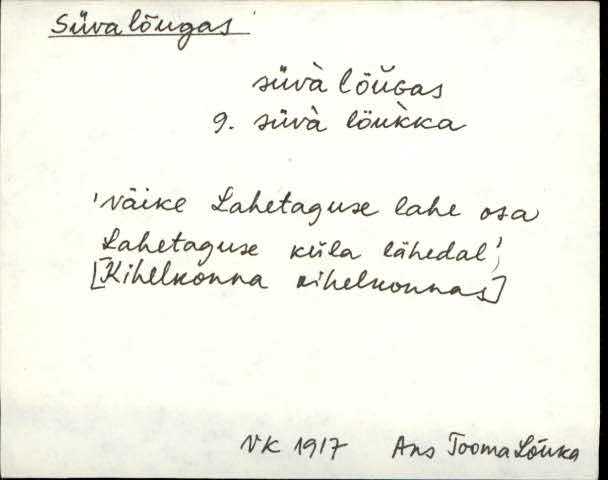 Süva lõugas
süvà löŭGas
g. süvà löuk̀ka
'väike Lahetaguse lahe osa
Lahetaguse küla lähedal',
[Kihelkonna kihelkonnas]
VK 1917 Ans Tooma Lõuka